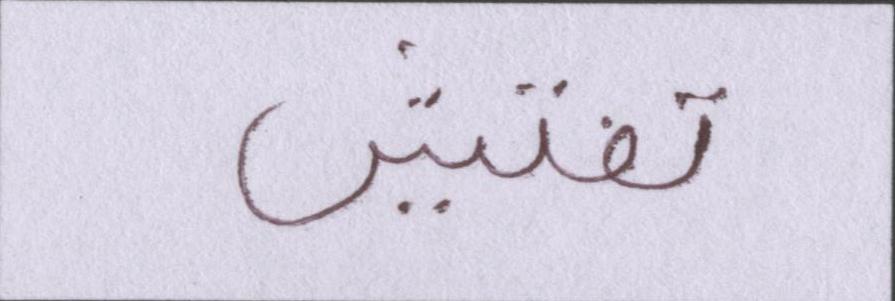 تفتيش